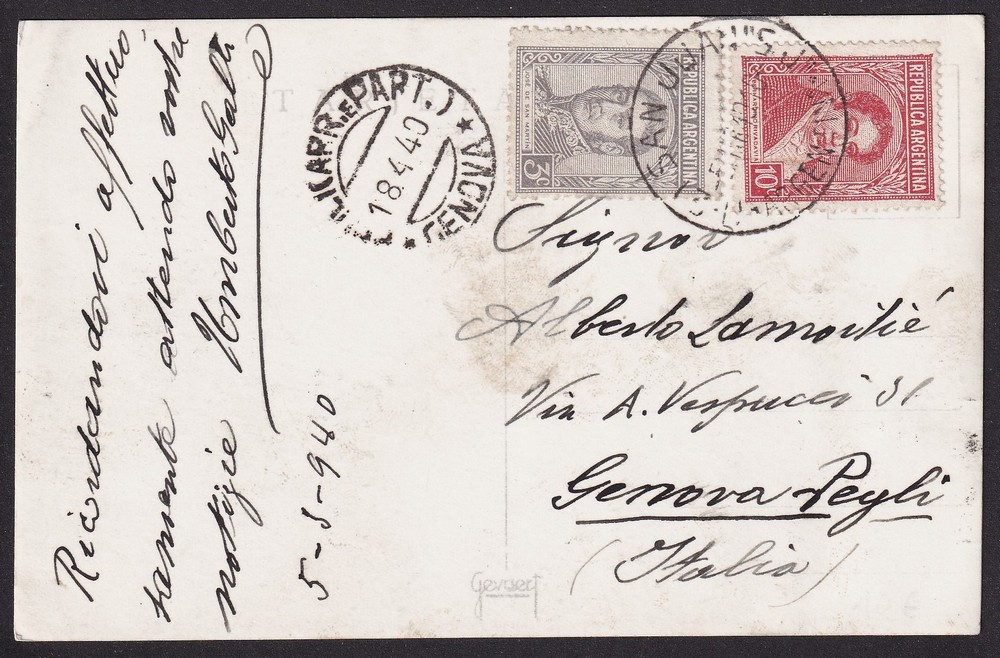 Ricordandovi affettuo
samente attendo vostre
notizie Umberto Galli
5-3-940
TARJETA
GENOVA
18.4.40
ARR. e PART.)
REPUBLICA ARGENTINA
JOSE DE SAN MARTIN
3c
REPUBLICA ARGENTINA
10
Signor
Alberto Lamorthé
Via A. Vespucci 31
Genova Pegli
(Italia)
Gevaert